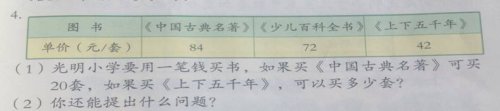 4.
图 书 《中国古典名著》 《少儿百科全书》 《上下五千年》
单价（元/套） 84 72 42
（1）光明小学要用一笔钱买书，如果买《中国古典名著》可买
20套，如果买《上下五千年》，可以买多少套？
（2）你还能提出什么问题？